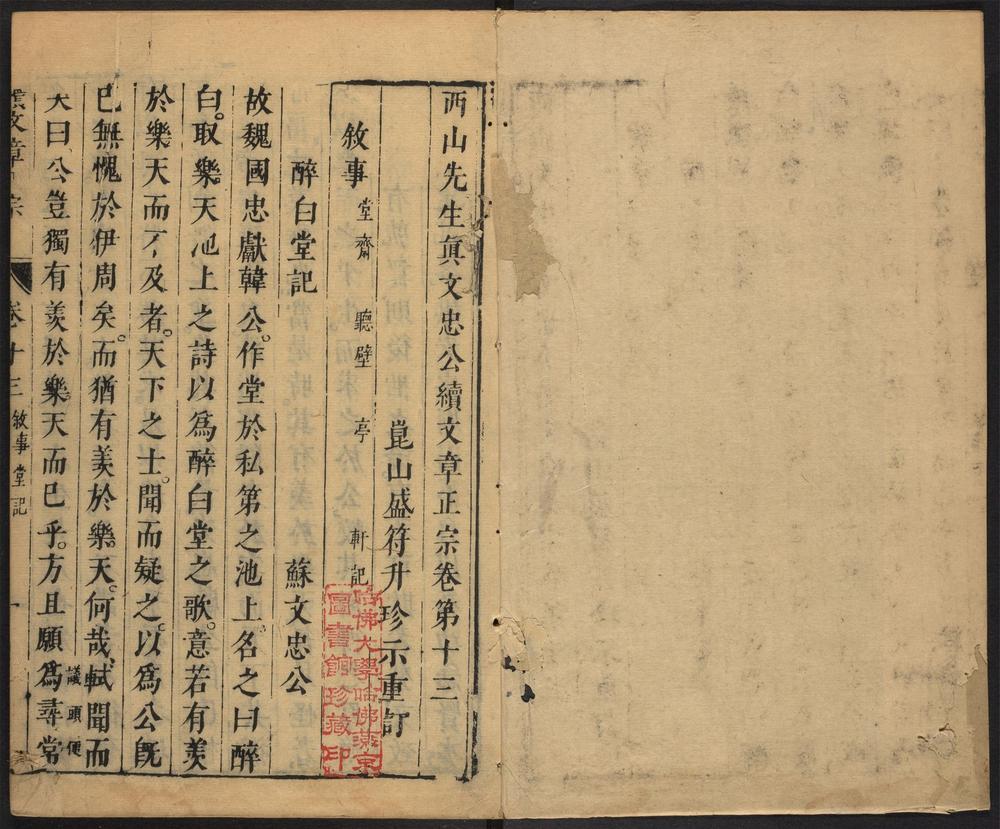 西山先生眞文忠公續文章正宗卷第十三
崑山盛符升珍示重訂
敘事 堂齋 聽壁 亭 軒記
醉白堂記 蘇文忠公
故魏國忠獻韓公。作堂於私第之池上。名之曰醉
白。取樂天池上之詩以爲醉白堂之歌。意若有羨
於樂天而不及者。天下之士。聞而疑之。以爲公旣
已無愧於伊周矣。而猶有羨於樂天。何哉。軾聞而
議頭便
笑曰。公豈獨有羨於樂天而已乎。方且願爲尋常
文章正宗 卷十三 敘事 堂記 一
哈佛大學哈佛燕京
圖書館珍藏印